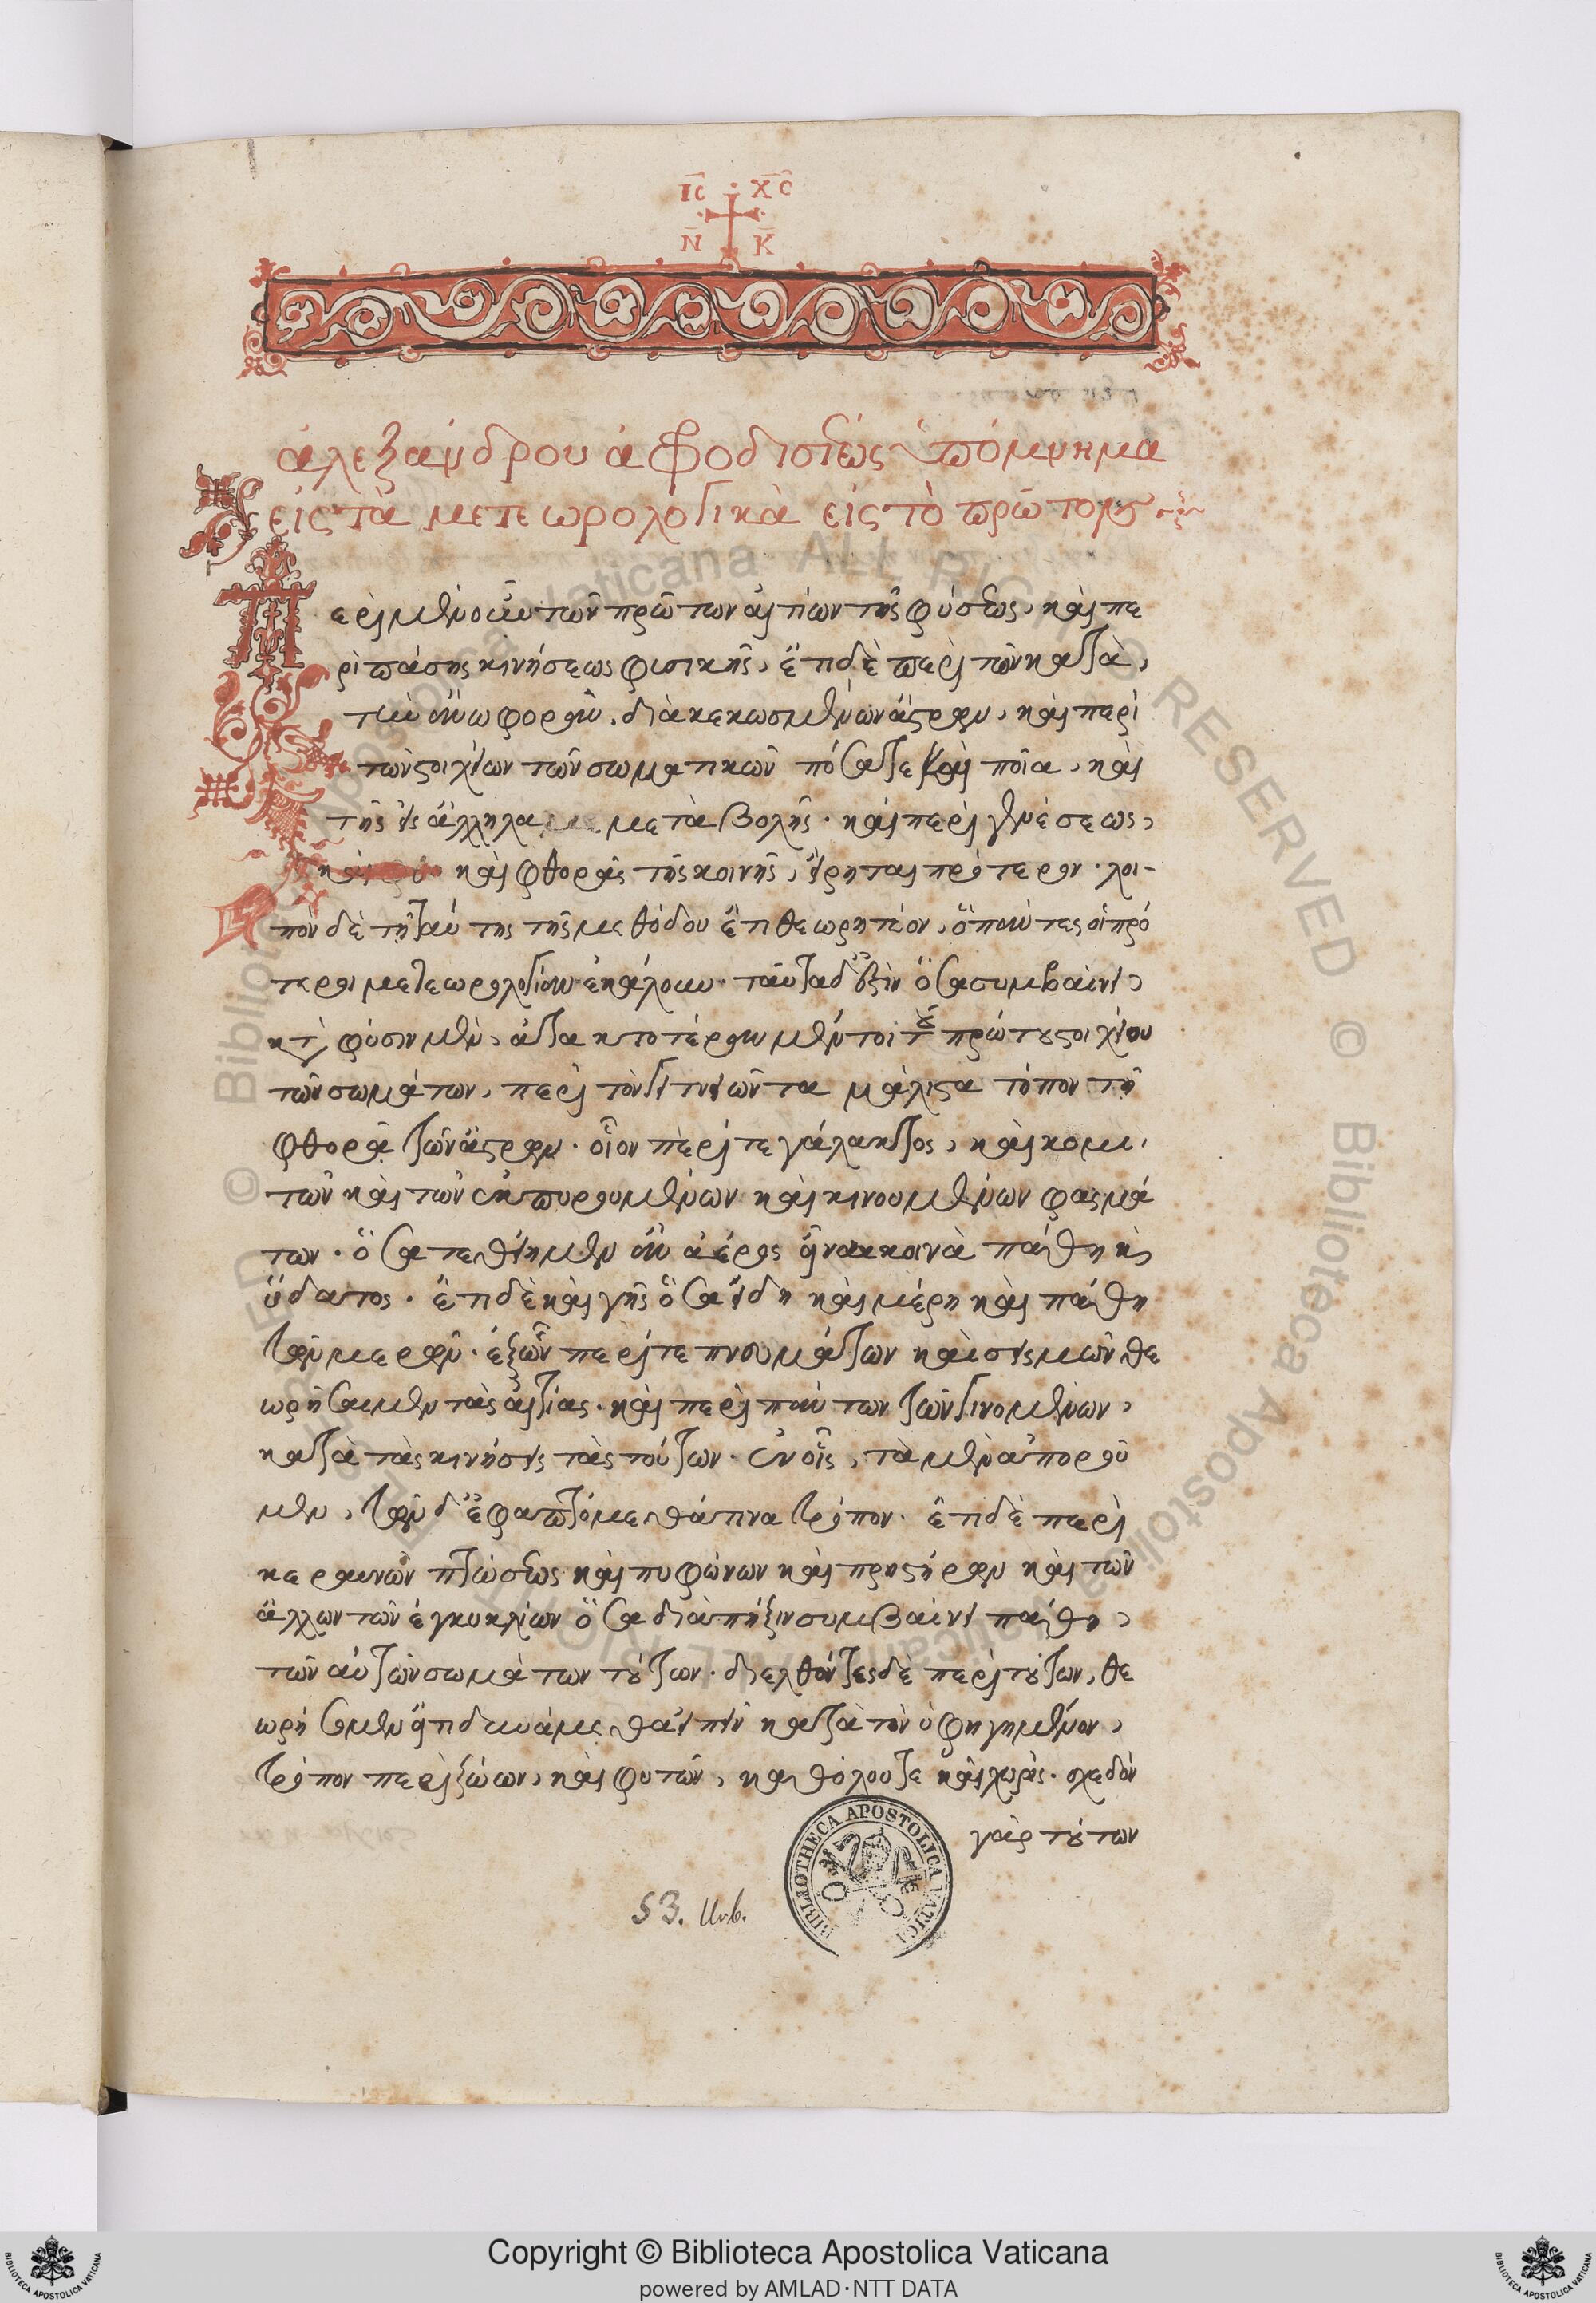 ΙC ΧC
Ν Κ
ἀλεξάνδρου ἀφροδισιέως ὑπόμνημα
εἰς τὰ μετεωρολογικὰ εἰς τὸ πρῶτον
Περὶ μὲν οὖν τῶν πρώτων αἰτίων τῆς φύσεως, καὶ πε
ρὶ πάσης κινήσεως φισικῆς, ἔτι δὲ περὶ τῶν κατὰ,
τὴν ἄνω φορὰν, διακεκωσμημένων ἄστρων, καὶ περὶ
τῶν στοιχείων τῶν σωματικῶν πόσα τε καὶ ποῖα, καὶ
τῆς εἰς ἄλληλα μεταβολῆς. καὶ περὶ γενέσεως,
καὶ φθορᾶς τῆς κοινῆς, εἴρηται πρότερον. λοι-
πὸν δὲ τῆς αύτης τῆς μεθόδου ἔτι θεωρητέον, ὃ πάντες οἱ πρό
τεροι μετεωρολογίαν ἐκάλουν. ταῦτα δ' ἐστὶν ὅσα συμβαίνει,
κατὰ φύσιν μὲν, ἀτακτοτέραν μέντοι τοῦ πρώτου στοιχείου
τῶν σωμάτων, περὶ τὸν γειτνιῶντα μάλιστα τόπον τῇ
φθορᾷ τῶν ἄστρων. οἷον περί τε γάλακτος, καὶ κομη,
τῶν καὶ τῶν ἐκπυρουμένων καὶ κινουμένων φασμά
των. ὅσα τεθείημεν ἂν ἀέρος εἶναι κοινὰ πάθη καὶ
ὕδατος. ἔτι δὲ καὶ γῆς ὅσα εἴδη καὶ μέρη καὶ πάθη
τῶν μερῶν. ἐξ ὧν περί τε πνευμάτων καὶ σεισμῶν θε
ωρήσαιμεν τὰς αἰτίας. καὶ περὶ πάντων τῶν γινομένων,
κατὰ τὰς κινήσεις τὰς τούτων. ἐν οἷς, τὰ μὲν ἀποροῦ
μεν, τῶν δ' ἐφαπτόμεθά τινα τρόπον. ἔτι δὲ περὶ
κεραυνῶν πτώσεως καὶ τυφώνων καὶ πρηστήρων καὶ τῶν
ἄλλων τῶν ἐγκυκλίων ὅσα διὰ πῆξιν συμβαίνει πάθη,
τῶν αὐτῶν σωμάτων τούτων. διελθόντες δὲ περὶ τούτων, θε
ωρήσωμεν εἴ τι δυνάμεθα εἰπεῖν κατὰ τὸν ὑφηγημένον,
τρόπον περὶ ζώων, καὶ φυτῶν, καθόλου τε καὶ χωρίς. σχεδὸν
γὰρ τούτων
53. Urb.
BIBLIOTHECA APOSTOLICA VATIC
Copyright © Biblioteca Apostolica Vaticana
powered by AMLAD·NTT DATA